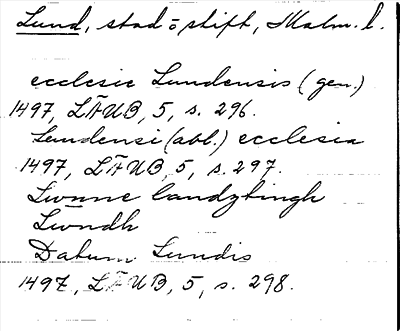 Lund, stad o stift, Malm. l.
ecclesie Lundensis (gen.)
1497, LÄUB, 5, s. 296.
Lundensi (abl.) ecclesia
1497, LÄUB, 5, s. 297.
Lwnne landztingh
Lwndh
Datum Lundis
1497, LÄUB, 5, s. 298.